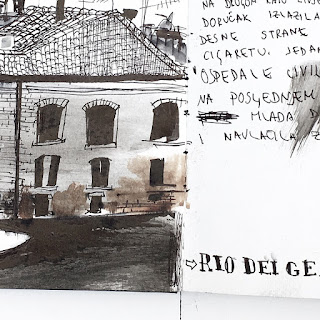 NA DRUGOM KATU
DORUČAK IZLAZILA
DESNE STRANE
CIGARETU. JEDAN
OSPEDALE CIVIL
NA POSLJEDNJEM
MLADA D
I NAVLAČILA Z
⇨RIO DEI GE